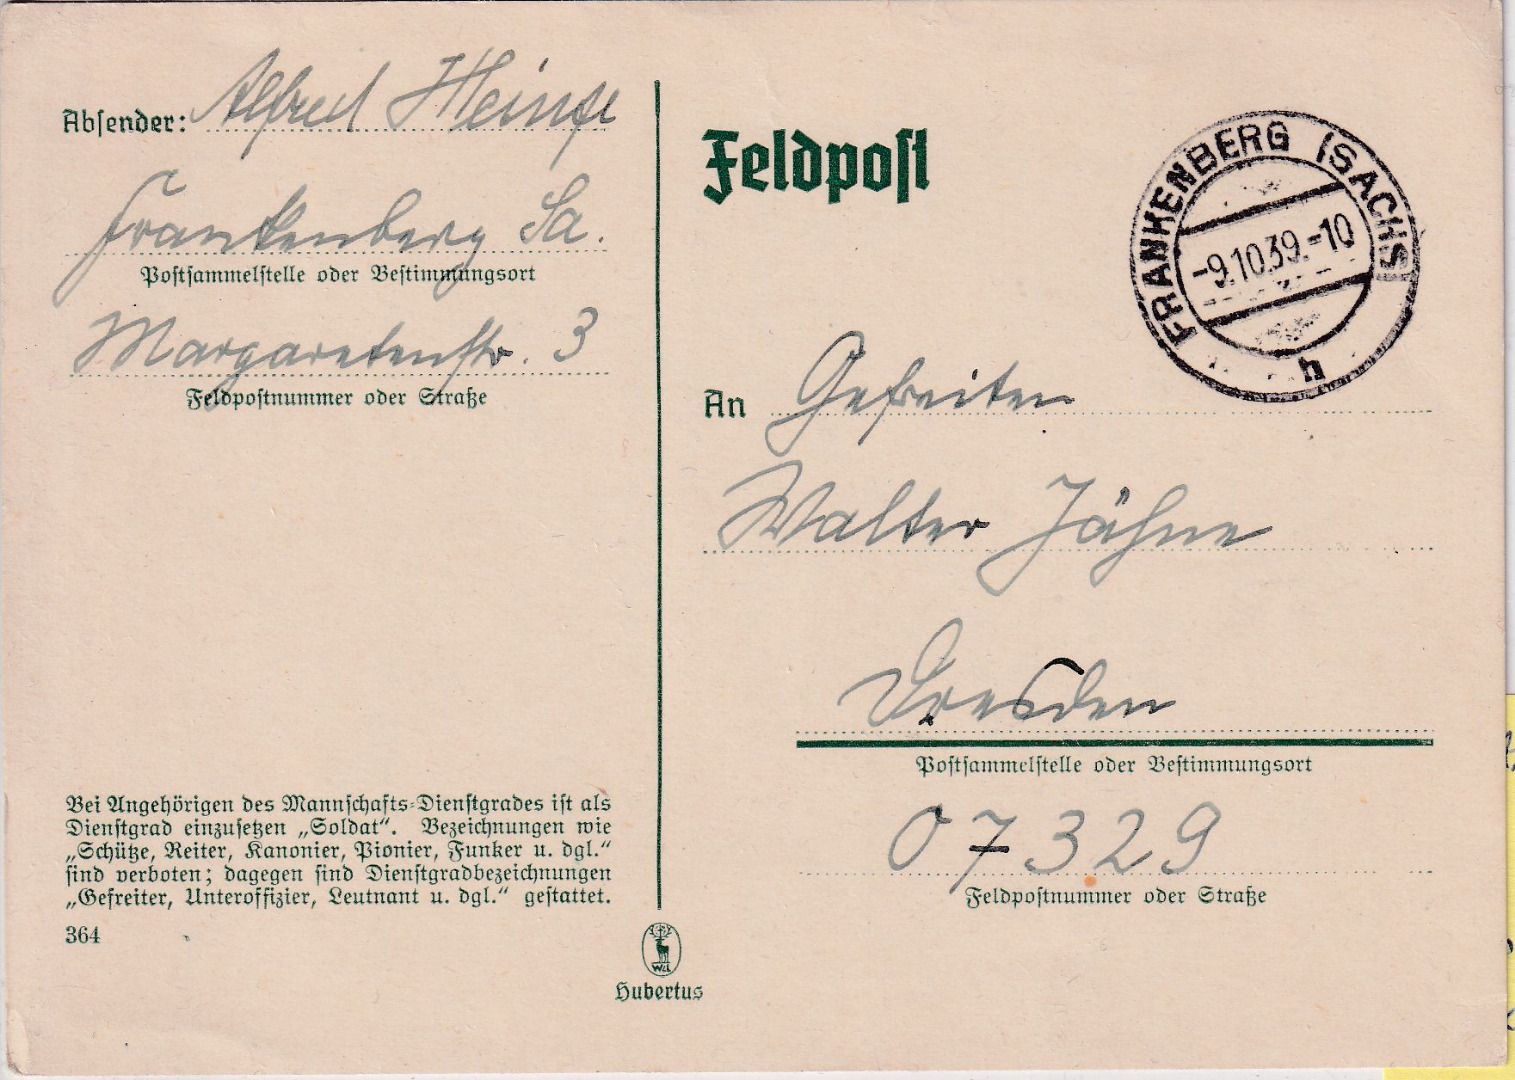 Absender: Alfred Heinze
Frankenberg Sa.
Postsammelstelle oder Bestimmungsort
Margaretenstr. 3
Feldpostnummer oder Straße
Bei Angehörigen des Mannschafts-Dienstgrades ist als
Dienstgrad einzusetzen „Soldat“. Bezeichnungen wie
„Schütze, Reiter, Kanonier, Pionier, Funker u. dgl.“
sind verboten; dagegen sind Dienstgradbezeichnungen
„Gefreiter, Unteroffizier, Leutnant u. dgl.“ gestattet.
364
WLL
Hubertus
Feldpost
FRANKENBERG (SACHS)
-9.10.39.-10
h
An Gefreiten
Walter Jähne
Dresden
Postsammelstelle oder Bestimmungsort
07329
Feldpostnummer oder Straße